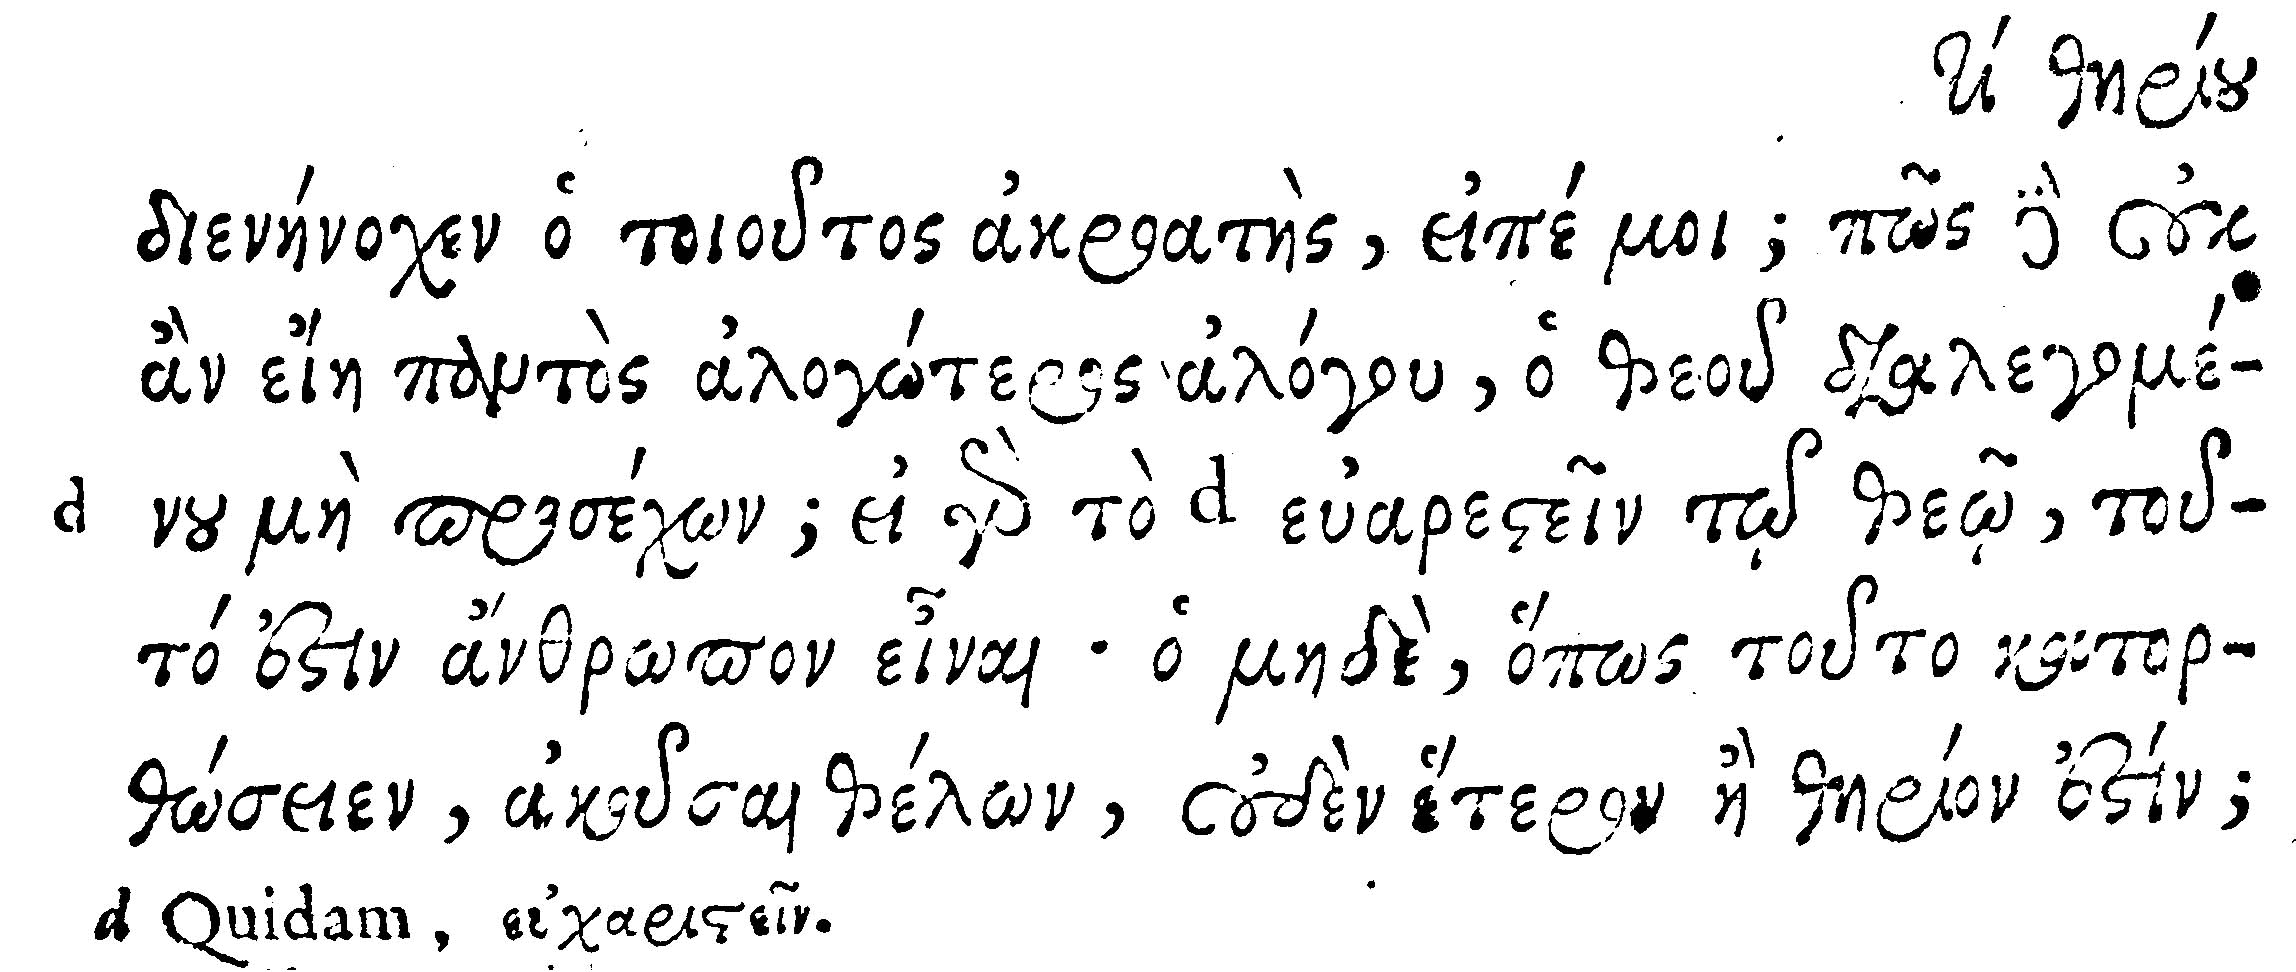 τί θηρίου
διενήνοχεν ὁ τοιοῦτος ἀκρατὴς, εἰπέ μοι; πῶς δὲ οὐκ
ἂν εἴη παντὸς ἀλογώτερος ἀλόγου, ὁ θεοῦ διαλεγομέ-
d νου μὴ προσέχων; εἰ γὰρ τὸ d εὐαρεστεῖν τῷ θεῷ, τοῦ-
τό ἐστιν ἄνθρωπον εἶναι · ὁ μηδὲ, ὅπως τοῦτο κατορ-
θώσειεν, ἀκοῦσαι θέλων, οὐδὲν ἕτερον ἢ θηρίον ἐστίν;
d Quidam, εὐχαριστεῖν.